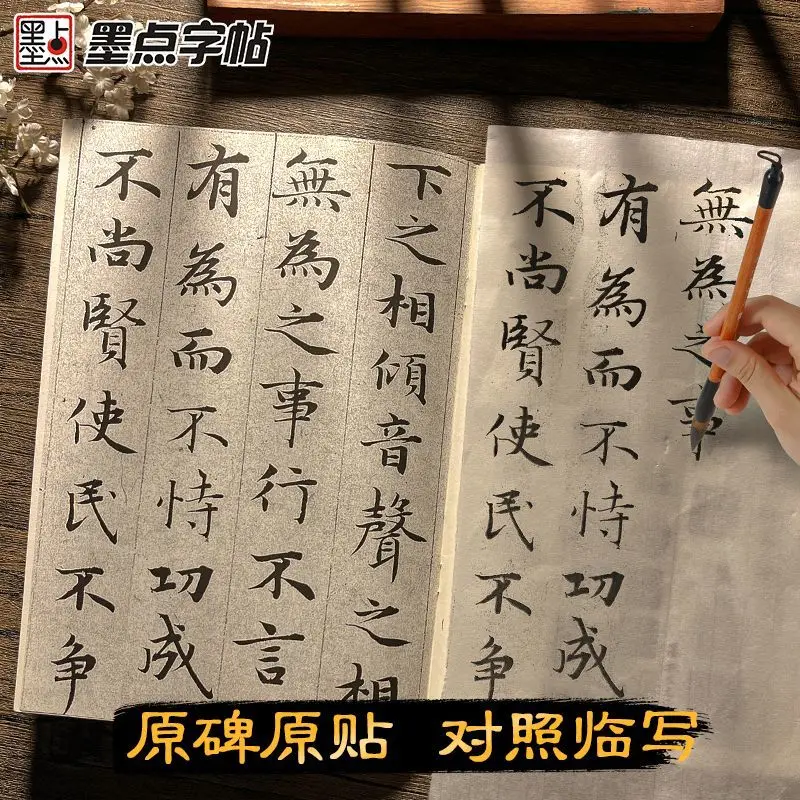 墨点 墨点字帖
下之相傾音聲之相
無為之事行不言
有為而不恃功成
不尚賢使民不争
無為之事
有為而不恃功成
不尚賢使民不争
原碑原贴 对照临写